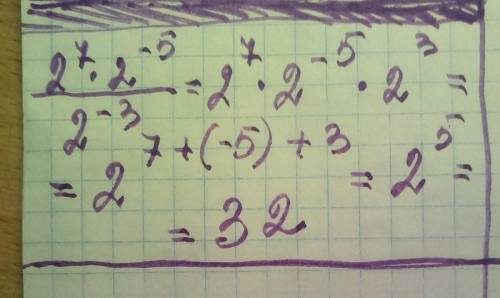 2⁷·2⁻⁵/2⁻³ = 2⁷·2⁻⁵·2³ =
= 2⁷⁺⁽⁻⁵⁾⁺³ = 2⁵ =
= 32